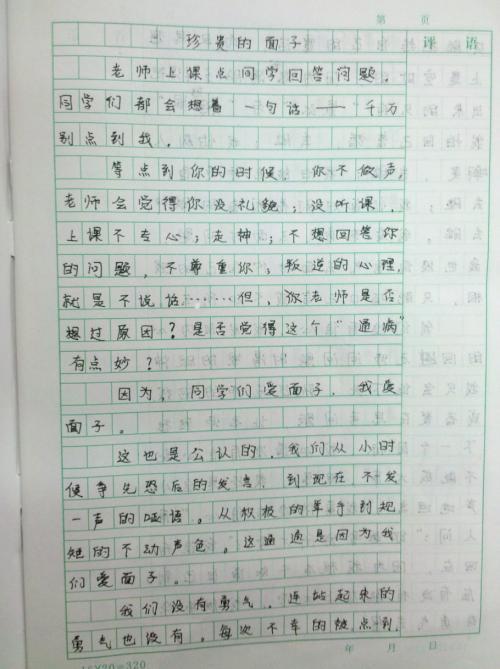 第 页
评 语
珍贵的面子
老师上课点同学回答问题，
同学们都会想着一句话——千万
别点到我。
等点到你的时候，你不做声，
老师会觉得你没礼貌；没听课，
上课不专心；走神；不想回答你
的问题，不尊重你；叛逆的心理，
就是不说话……但，你老师是否
想过原因？是否觉得这个“通病”
有点妙？
因为，同学们爱面子，我爱
面子。
这也是公认的，我们从小时
候争先恐后的发言，到现在不发
一声的哑语。从积极的举手到规
矩的不动声色。这通通是因为我
们爱面子。
我们没有勇气，连站起来的
勇气也没有。每次不幸的被点到，
16X20=320
年 月 日